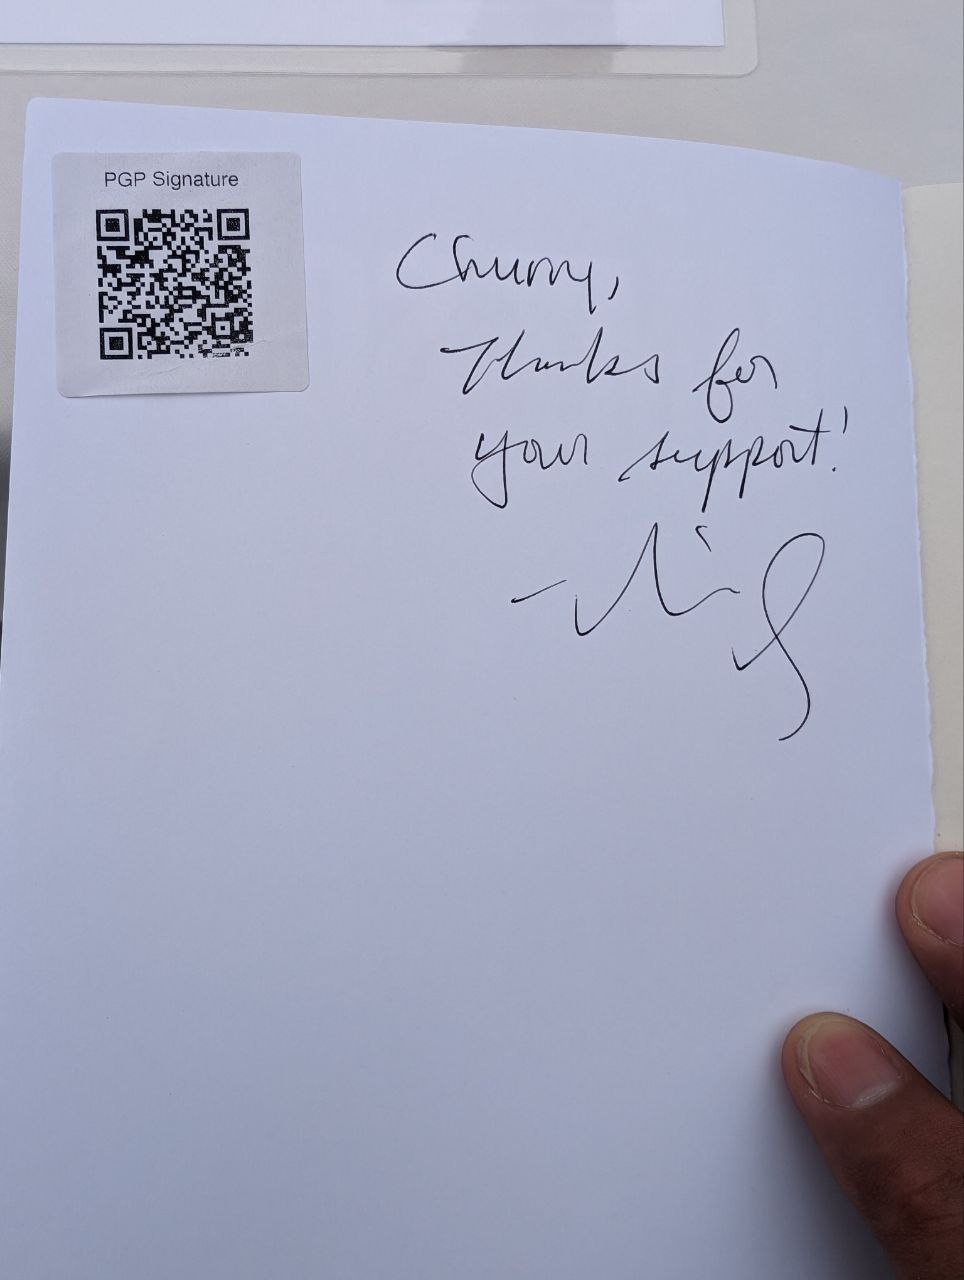 PGP Signature
Thanks for
your support!